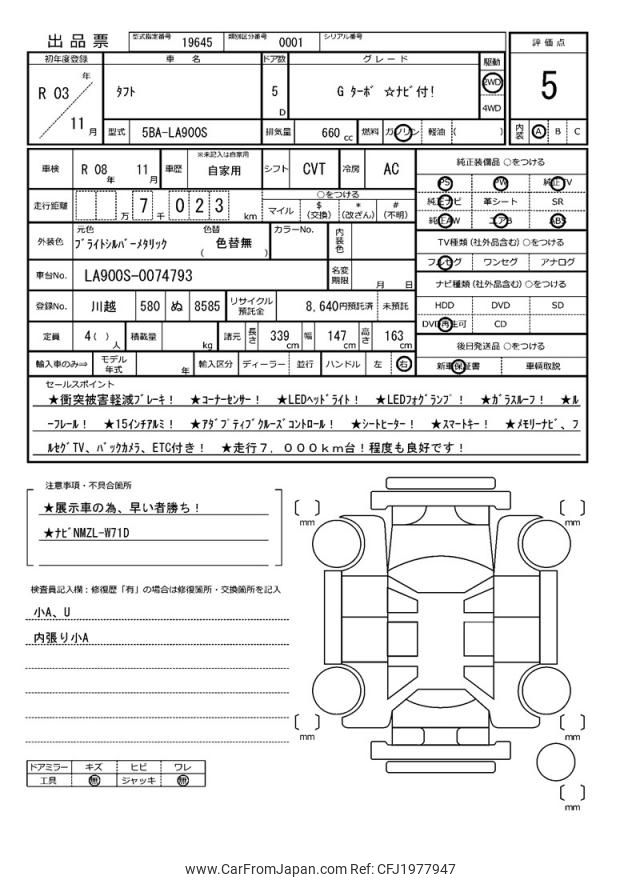 出品票 型式指定番号 19645 類別区分番号 0001 シリアル番号
評価点
5
内装 A B C
初年度登録 車名 ドア数 グレード 駆動
R 03 年 11 月
タフト 5 D G ターボ ☆ナビ付! 2WD 4WD
型式 5BA-LA900S 排気量 660 cc 燃料 ガソリン 軽油 ( )
車検 R 08 年 11 月 車歴 ※未記入は自家用 自家用 シフト CVT 冷房 AC
走行距離 万 7 千 0 2 3 km
○をつける
マイル $ (交換) * (改ざん) # (不明)
外装色 元色 ブライトシルバーメタリック 色替 ( 色替無 ) カラーNo. 内装色
車台No. LA900S-0074793 名変期限 月 日
登録No. 川越 580 ぬ 8585 リサイクル預託金 8,640円預託済 未預託
定員 4 ( ) 人 積載量 kg 諸元 長さ 339 cm 幅 147 cm 高さ 163 cm
輸入車のみ⇒ モデル年式 年 輸入区分 ディーラー 並行 ハンドル 左 右
純正装備品 ○をつける
PS PW 純正TV
純正ナビ 革シート SR
純正AW エアB ABS
TV種類 (社外品含む) ○をつける
フルセグ ワンセグ アナログ
ナビ種類 (社外品含む) ○をつける
HDD DVD SD
DVD再生可 CD
後日発送品 ○をつける
新車保証書 車輌取説
セールスポイント
★衝突被害軽減ブレーキ! ★コーナーセンサー! ★LEDヘッドライト! ★LEDフォグランプ! ★ガラスルーフ! ★ル
ーフレール! ★15インチアルミ! ★アダプティブクルーズコントロール! ★シートヒーター! ★スマートキー! ★メモリーナビ、フ
ルセグTV、バックカメラ、ETC付き! ★走行7,000km台!程度も良好です!
注意事項・不具合箇所
★展示車の為、早い者勝ち!
★ナビNMZL-W71D
検査員記入欄:修復歴「有」の場合は修復箇所・交換箇所を記入
小A、U
内張り小A
ドアミラー キズ ヒビ ワレ
工具 無 ジャッキ 無
mm
mm
mm
mm
mm
www.CarFromJapan.com Ref: CFJ1977947